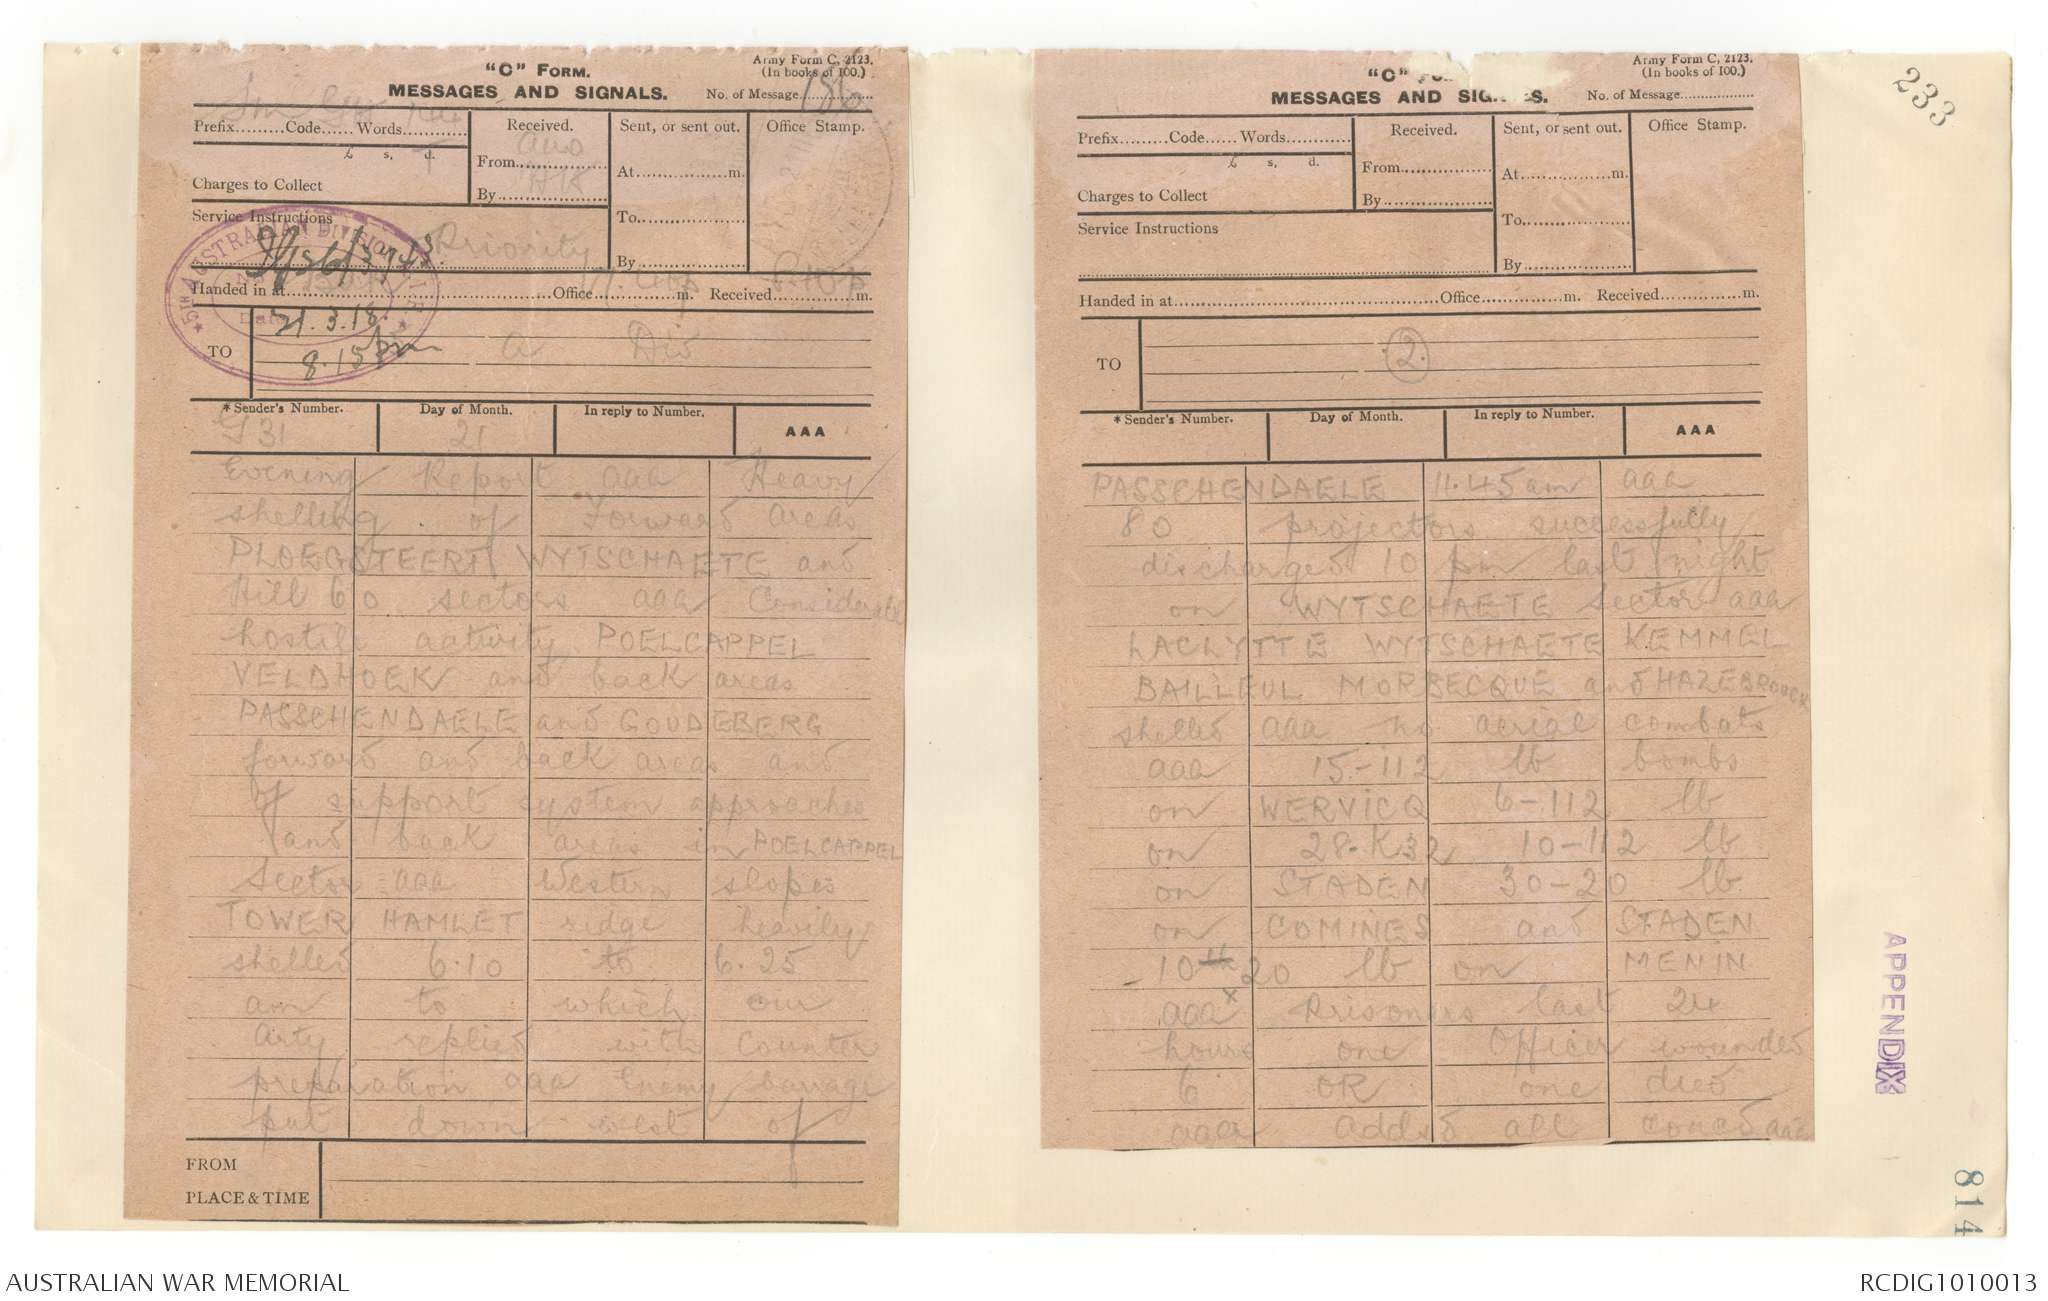 "C" Form.
MESSAGES AND SIGNALS.
Army Form C, 2123.
(In books of 100.)
No. of Message
Prefix.........Code......Words............
£ s. d.
Charges to Collect
Received.
From
By
Sent, or sent out.
At...............m.
To
By
Office Stamp.
Service Instructions
Priority
5TH AUSTRALIAN DIVISION
21.3.18.
8.15 pm
Handed in at..........Office..........m. Received..........m.
TO
a Div
*Sender's Number.
Day of Month.
In reply to Number.
AAA
G 31
21
Evening Report aaa Heavy
shelling of Forward areas
PLOEGSTEERT WYTSCHAETE and
Hill 60 sectors aaa Considerable
hostile activity POELCAPPEL
VELDHOEK and back areas
PASSCHENDAELE and GOUDEBERG
forward and back areas and
of support system approaches
and back areas in POELCAPPEL
Sector aaa Western slopes
TOWER HAMLET ridge heavily
shelled 6.10 to 6.25
am to which our
Arty replied with Counter
preparation aaa Enemy barrage
put down west of
FROM
PLACE & TIME
MESSAGES AND
Army Form C, 2123.
(In books of 100.)
No. of Message
Prefix.........Code......Words............
£ s. d.
Charges to Collect
Received.
From
By
Sent, or sent out.
At...............m.
To
By
Office Stamp.
Service Instructions
Handed in at..........Office..........m. Received..........m.
TO
2.
*Sender's Number.
Day of Month.
In reply to Number.
AAA
PASSCHENDAELE 11.45 am aaa
80 projectors successfully
discharged 10 pm last night
on WYTSCHAETE Sector aaa
LACLYTTE WYTSCHAETE KEMMEL
BAILLEUL MORBECQUE and HAZEBROUCK
shelled aaa no aerial combats
aaa 15-112 lb bombs
on WERVICQ 6-112 lb
on 28.K32 10-112 lb
on STADEN 30-20 lb
on COMINES and STADEN
- 10 20 lb on MENIN
aaa x Prisoners last 24
hours one Officer wounded
6 OR one died
aaa addsd all concd aaa
233
APPENDIX
814
AUSTRALIAN WAR MEMORIAL
RCDIG1010013